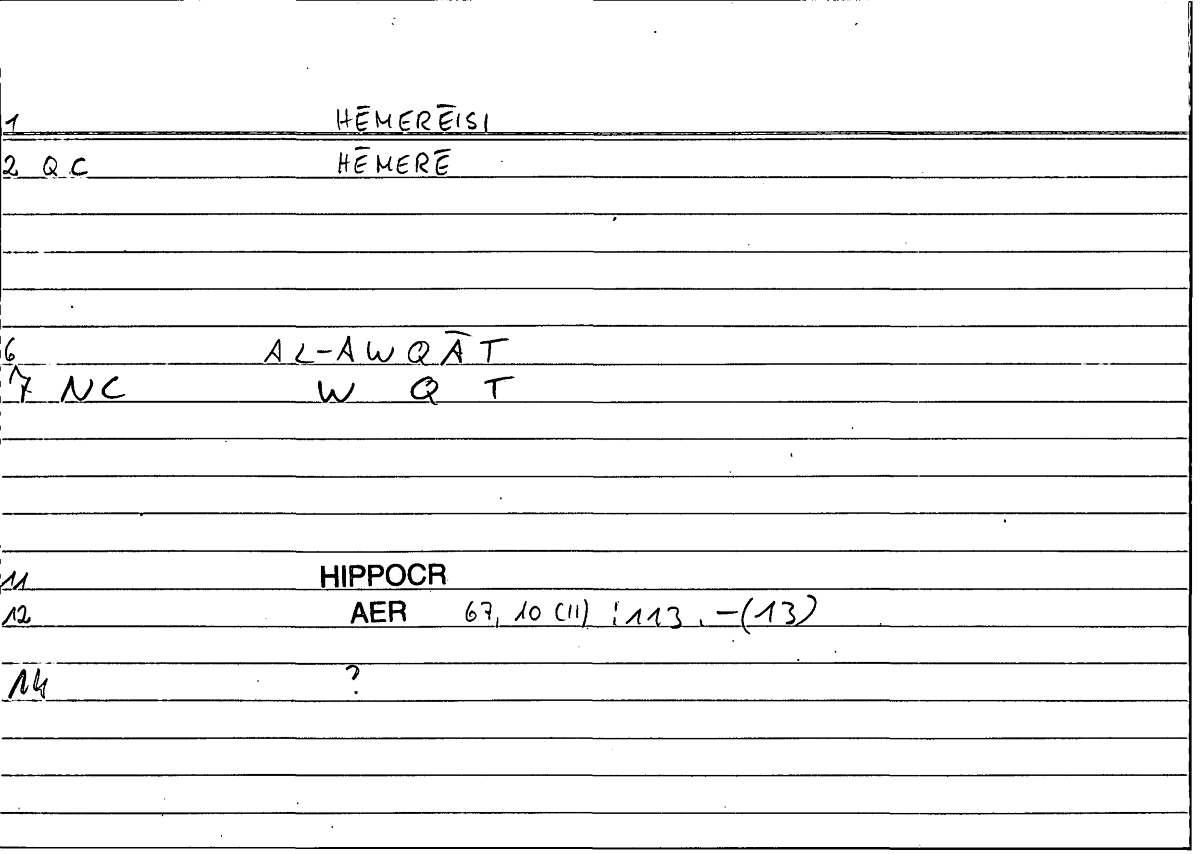 1 HĒMERĒISI
2 QC HĒMERĒ
6 AL-AWQĀT
7 NC W Q T
11 HIPPOCR
12 AER 67, 10 (11) ; 113 . -(13)
14 ?